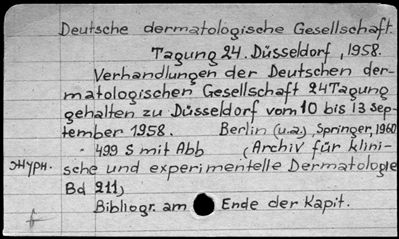 Deutsche dermatologische Gesellschaft.
Tagung 24. Düsseldorf, 1958.
Verhandlungen der Deutschen der-
matologischen Gesellschaft 24 Tagung
gehalten zu Düsseldorf vom 10 bis 13 Sep-
tember 1958. Berlin (u.a.), Springer, 1960
499 S mit Abb (Archiv für klini-
журн. sche und experimentelle Dermatologie
Bd 211)
Bibliogr. am Ende der Kapit.